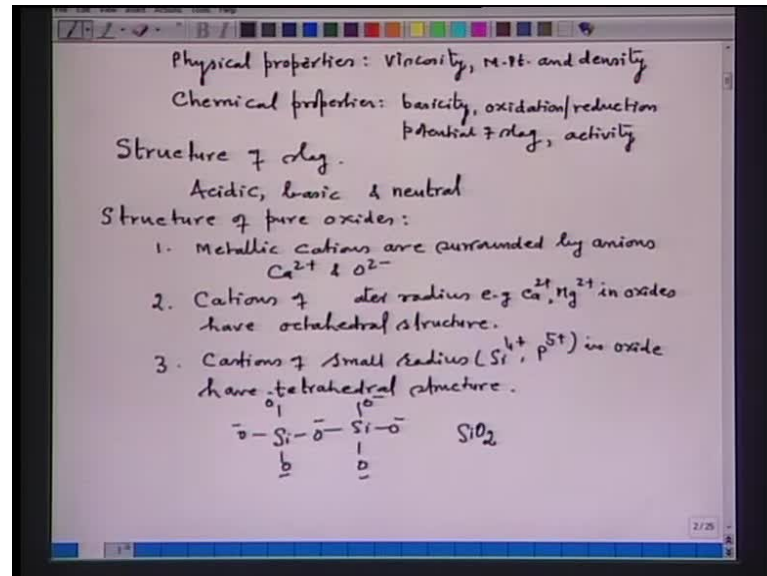 Physical properties: Viscosity, M.Pt. and density
Chemical properties: basicity, oxidation/reduction
potential of slag, activity
Structure of slag.
Acidic, basic & neutral
Structure of pure oxides:
1. Metallic cations are surrounded by anions
Ca2+ & O2-
2. Cations of ater radius e.g Ca2+, Mg2+ in oxides
have octahedral structure.
3. Cations of small radius (Si4+, P5+) in oxide
have tetrahedral structure.
O O-
-O-Si-O-Si-O- SiO2
O O
2/25